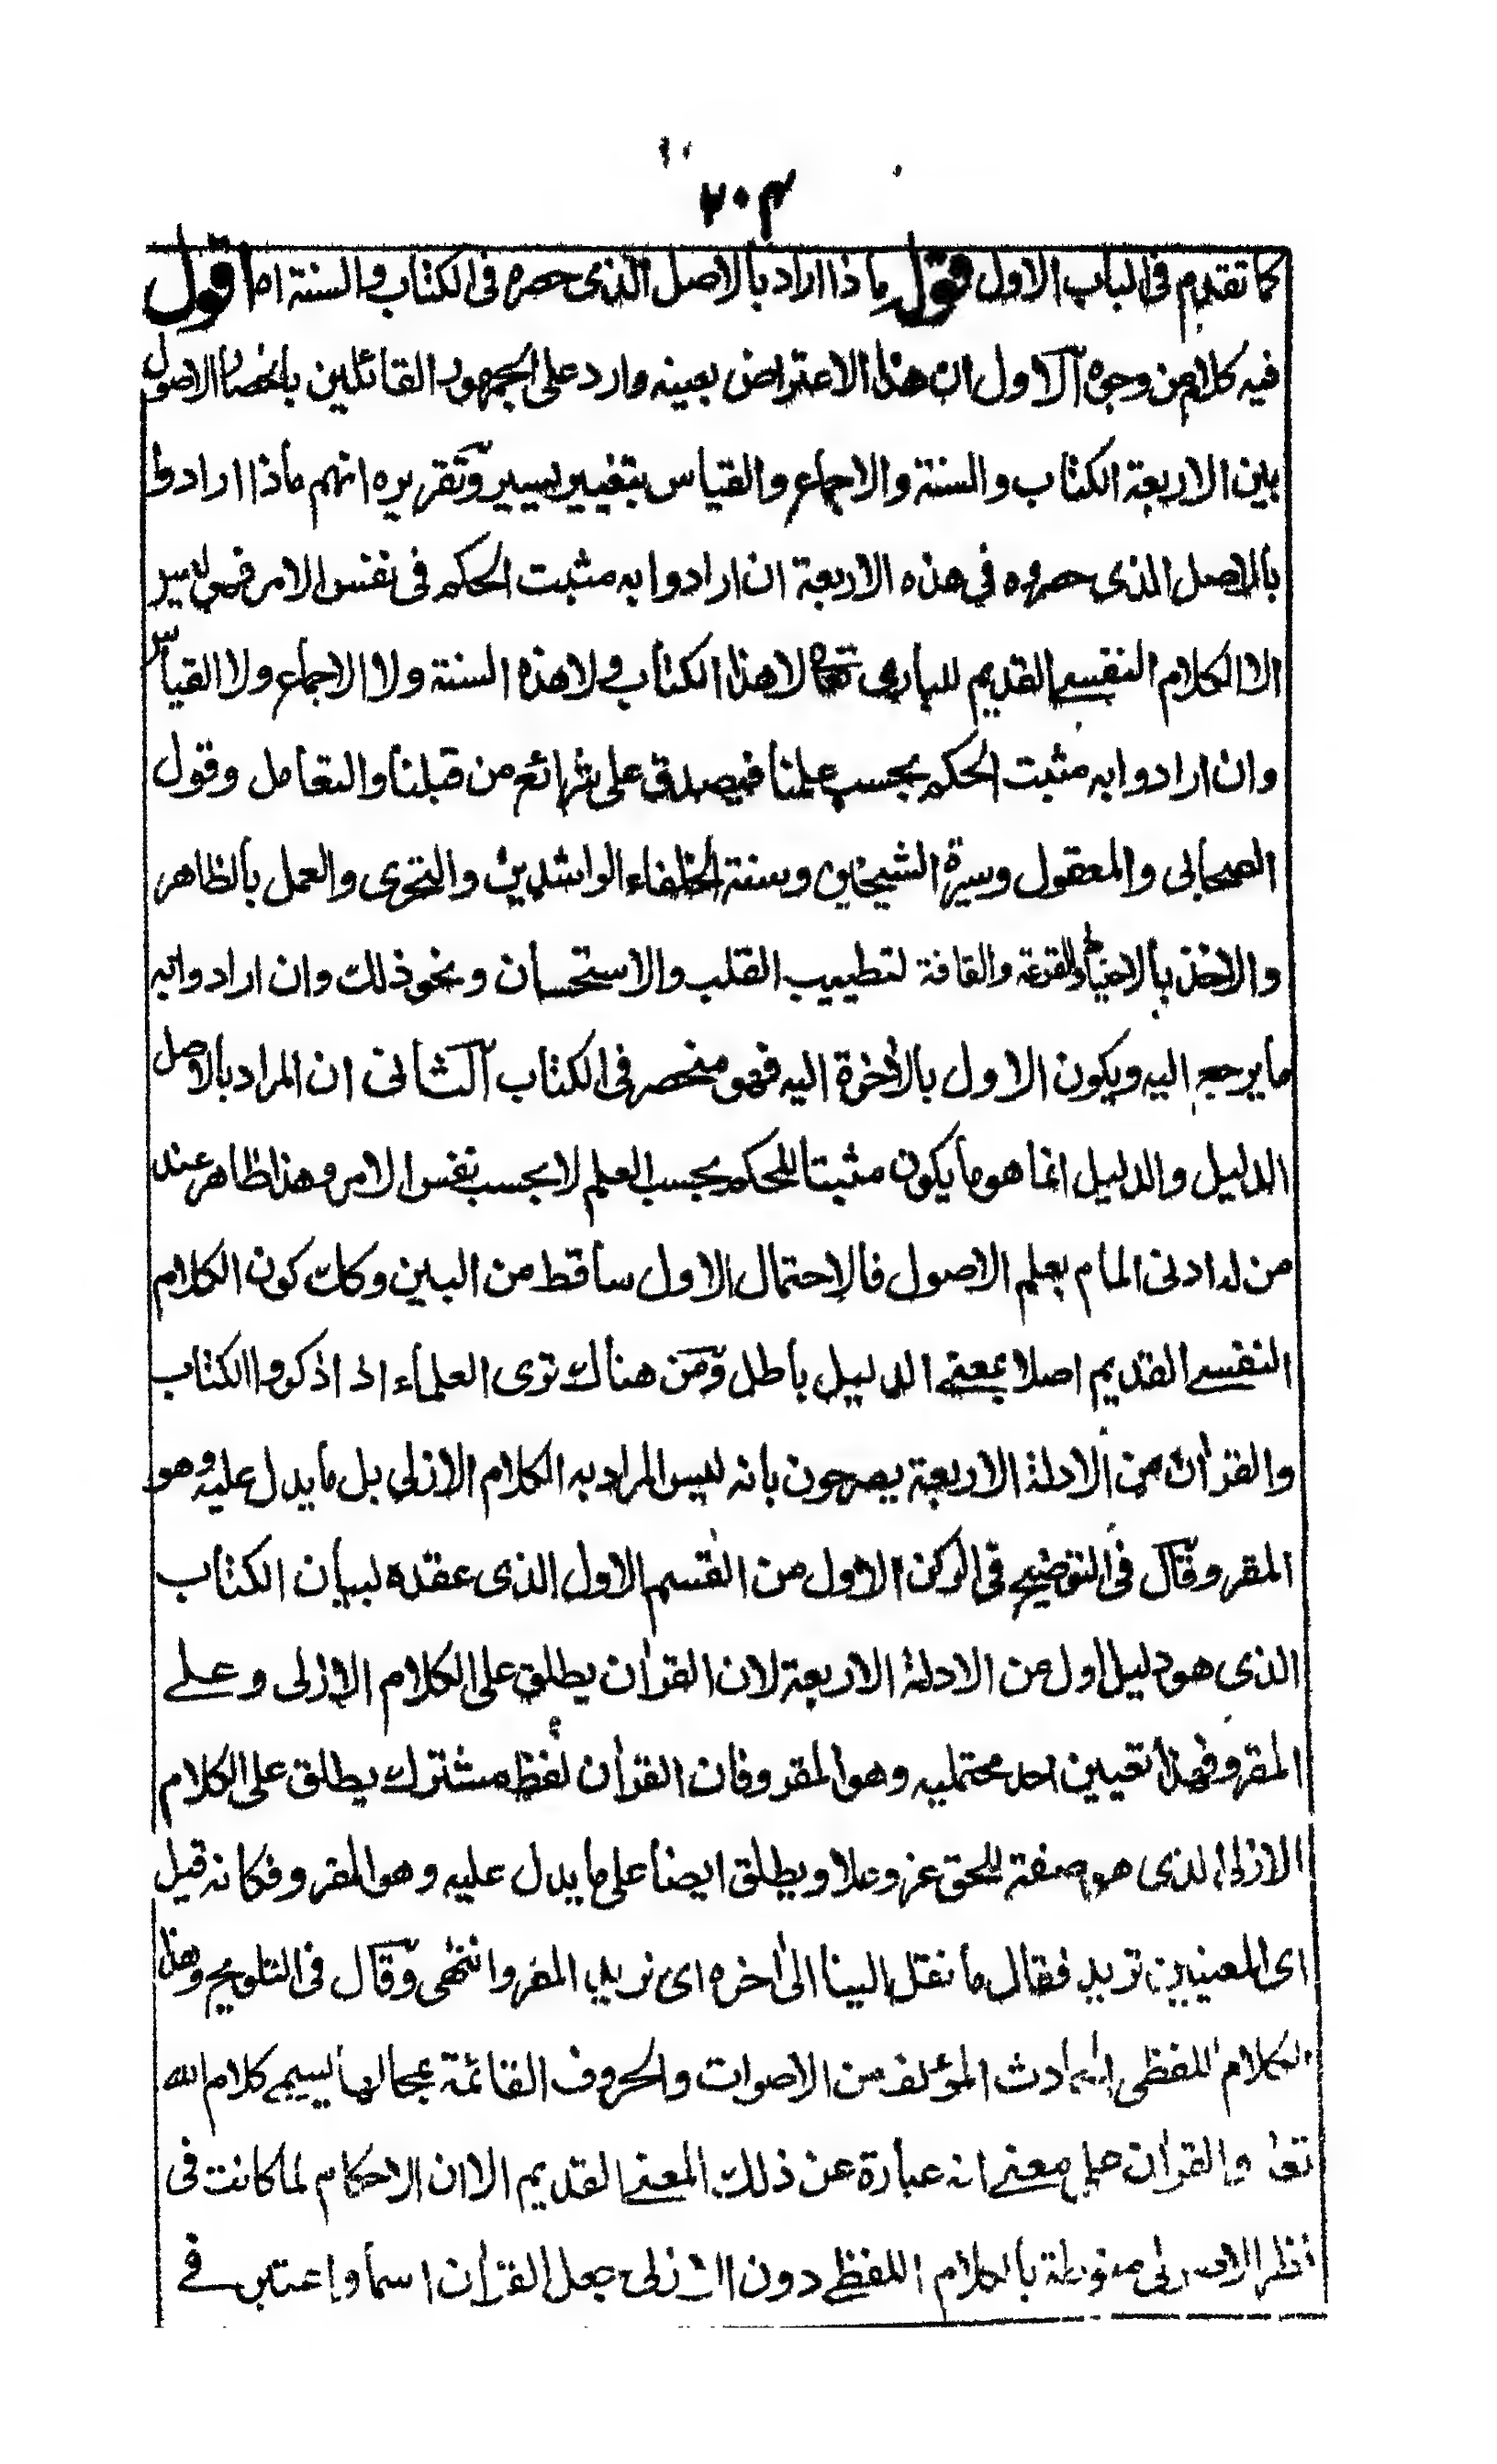 ٢٠٣
كما تقدم فى الباب الاول قوله ماذا اراد بالاصل الذى حصره فى الكتاب والسنة اه اقول
فيه كلام من وجوه آلاول ان هذا الاعتراض بعينه وارد على الجمهور القائلين بانحصار الاصول
بين الاربعة الكتاب والسنة والاجماع والقياس بتغيير يسير وتقريره انهم ماذا ارادوا
بالاصل الذى حصروه فى هذه الاربعة ان ارادوا به مثبت الحكم فى نفس الامر فهو ليس
الا الكلام النفسے القديم للبارى تعالى لا هذا الكتاب ولا هذه السنة ولا الاجماع ولا القياس
وان ارادوا به مثبت الحكم بحسب علمنا فيصدق على شرائع من قبلنا والتعامل وقول
الصحابى والمعقول وسيرة الشيخين وسنة الخلفاء الراشدين والتحرى والعمل بالظاهر
والاخذ بالاحتياط والقرعة والقافة لتطييب القلب والاستحسان ونحو ذلك وان ارادوا به
ما يرجع اليه ويكون الاول بالأخرة اليه فهو منحصر فى الكتاب آلثانى ان المراد بالاصل
الدليل والدليل انما هو ما يكون مثبتا للحكم بحسب العلم لا بحسب نفس الامر وهذا ظاهر عند
من له ادنى المام بعلم الاصول فالاحتمال الاول ساقط من البين وكان كون الكلام
النفسے القديم اصلا بمعنے الدليل باطل ومن هناك ترى العلماء اذا ذكروا الكتاب
والقرأن من الادلة الاربعة يصرحون بانه ليس المراد به الكلام الازلى بل ما يدل عليه وهو
المقرو وقال فى التوضيح فى الركن الاول من القسم الاول الذى عقده لبيان الكتاب
الذى هو دليل اول من الادلة الاربعة لان القرأن يطلق على الكلام الازلى وعلے
المقرو فهذا تعيين احد محتمليه وهو المقرو فان القرأن لفظ مشترك يطلق على الكلام
الازلى الذى هو صفة للحق عز وعلا ويطلق ايضا على ما يدل عليه وهو المقرو فكانه قيل
اى المعنيين تريد فقال ما نقل الينا الى أخره اى نريد المقرو انتهى وقال فى التلويح وهذا
الكلام اللفظى الحادث المؤلف من الاصوات والحروف القائمة بمحالها يسمے كلام الله
تعالى والقرأن على معنے انه عبارة عن ذلك المعنے القديم الا ان الاحكام لما كانت فى
نظر الاصولى منوطة بالكلام اللفظے دون الازلى جعل القرأن اسما واعتبر فے